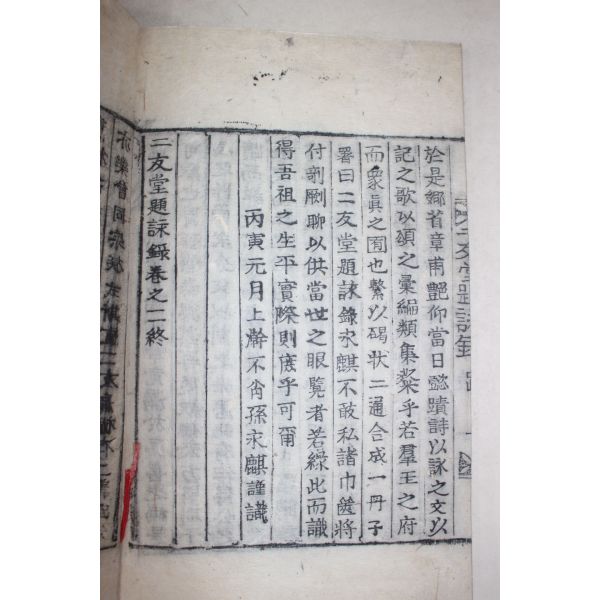 於是鄉省章甫艶仰當日懿蹟詩以詠之文以
記之歌以頌之彙編類集粲乎若羣玉之府
而衆眞之囿也繫以碣狀二通合成一冊子
署曰二友堂題詠錄永麒不敢私諸巾篋將
付剞劂聊以供當世之眼覧者若緣此而識
得吾祖之生平實際則庶乎可爾
丙寅元月上澣不肖孫永麒謹識
二友堂題詠錄卷之二終
二友堂題詠錄